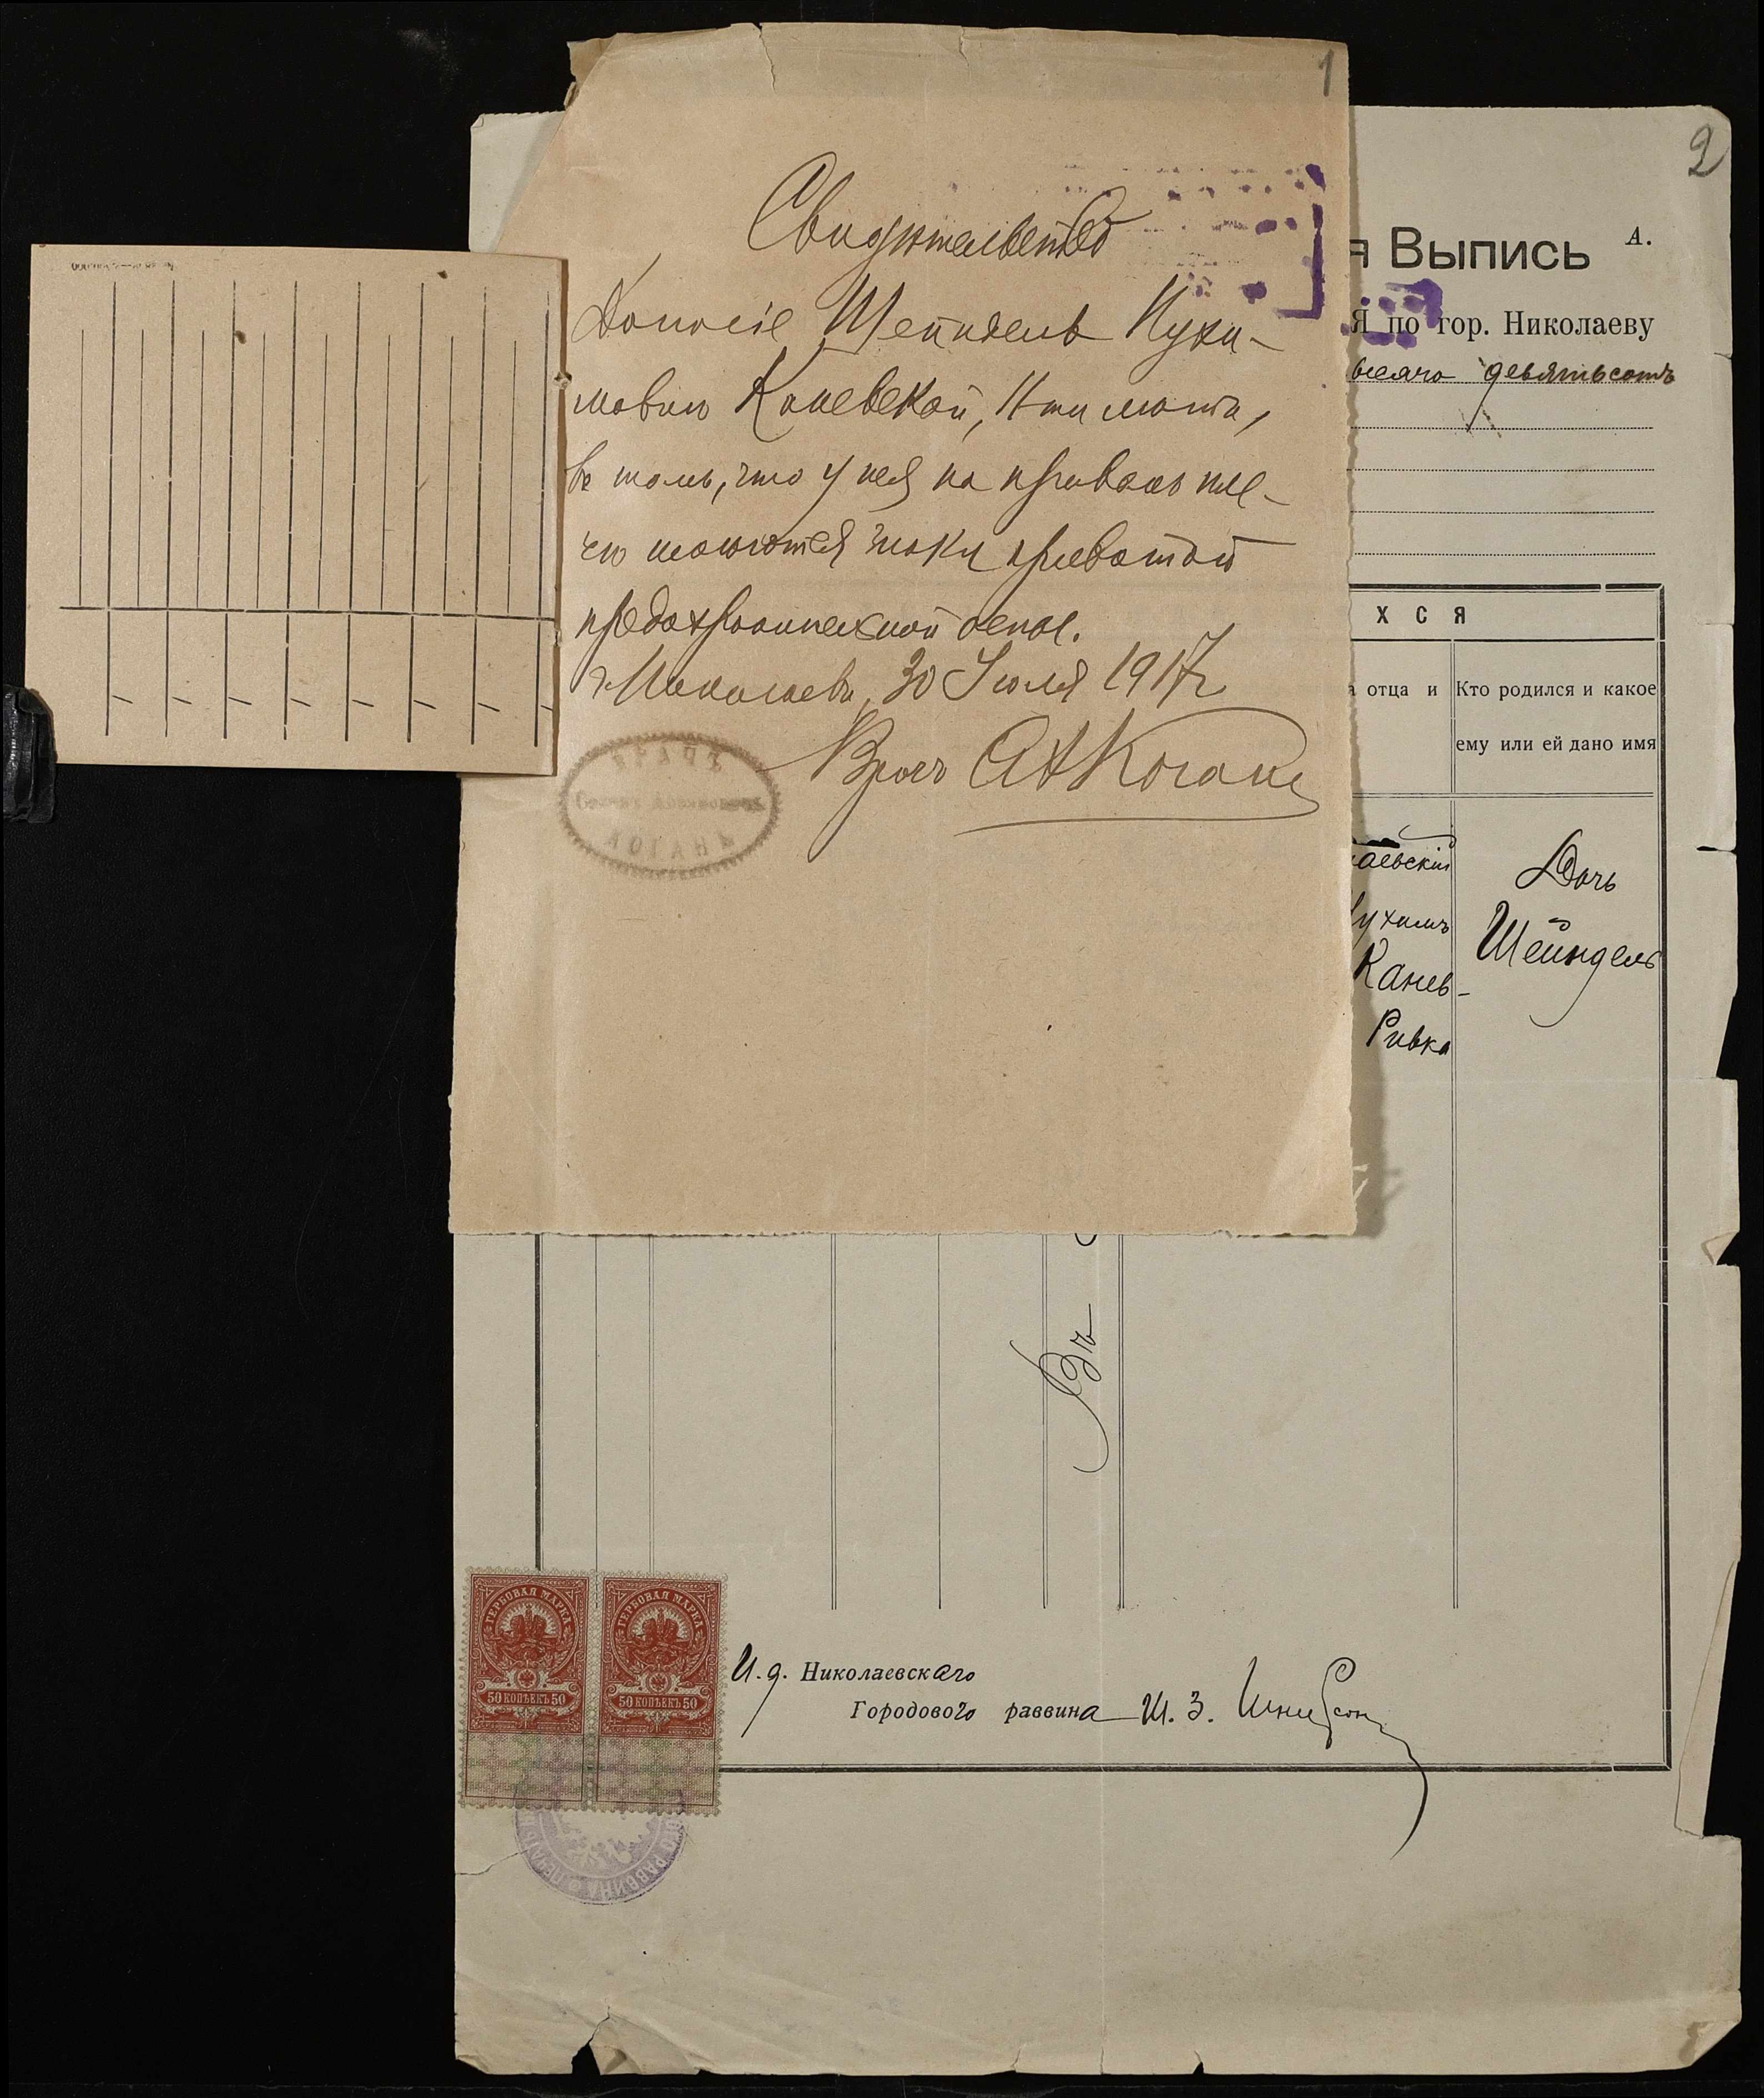 1
Свидѣтельство
Дано сіе Шейндель Нухи-
мовнѣ Каневской, 11 ти лѣтъ,
въ томъ, что у нея на правомъ пле-
чѣ имѣются знаки привитой
предохранительной оспы.
г. Николаевъ, 30 Іюля 1917 г
Врачъ А Коганъ
ВРАЧЪ
КОГАНЪ
2
я Выпись А.
Я по гор. Николаеву
тысяча девятьсотъ
Х С Я
а отца и
Кто родился и какое
ему или ей дано имя
аевскій
Нухимъ
Канев-
Ривка
Дочь
Шейндель
Въ
ГЕРБОВАЯ МАРКА
50 КОПѢЕКЪ 50
ГЕРБОВАЯ МАРКА
50 КОПѢЕКЪ 50
И. д. Николаевскаго
Городового раввина Ш. З. Шнеерсон
РАВВИНА